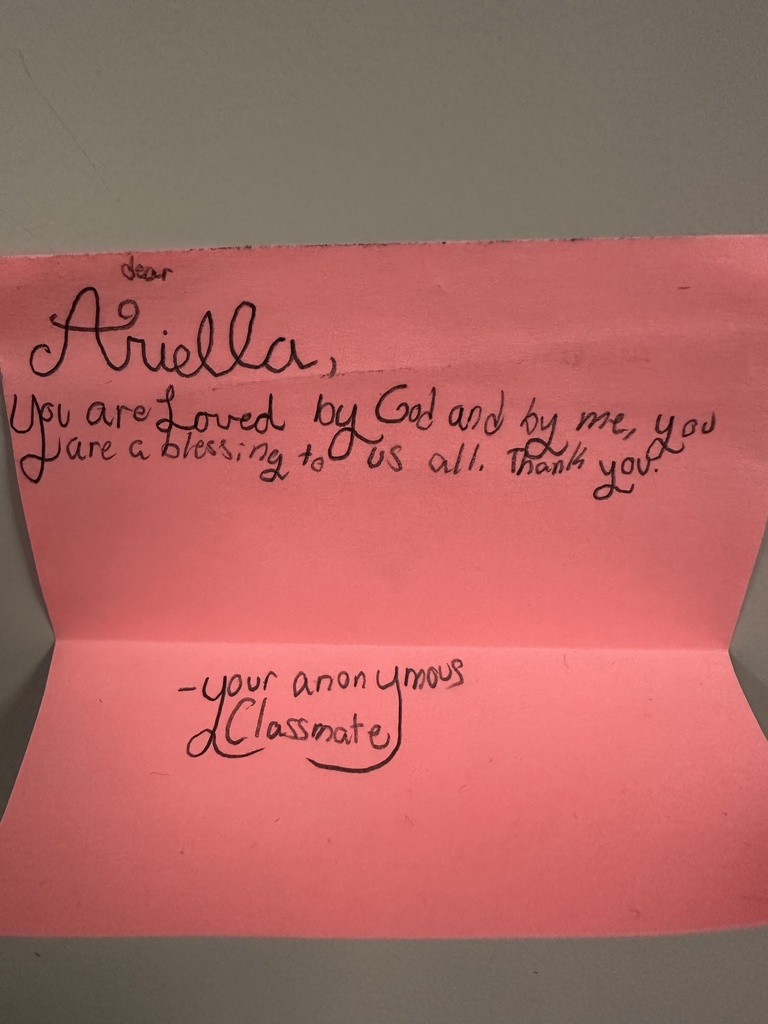 dear
Ariella,
You are Loved by God and by me, you
are a blessing to us all. Thank you.
-your anonymous
Classmate